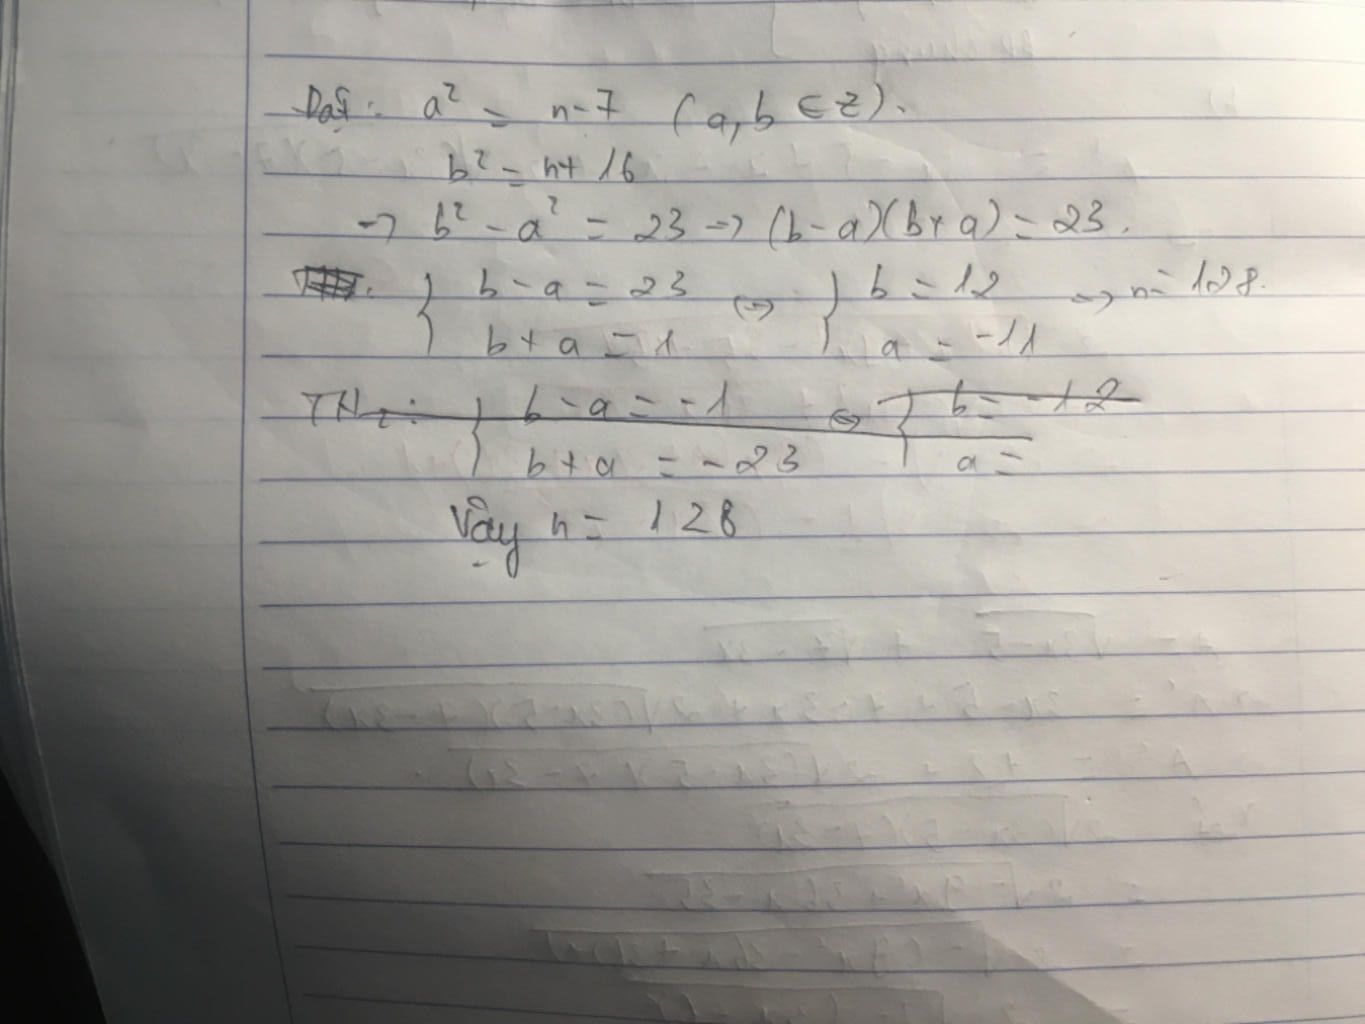 Đặt: a² = n-7 (a,b ∈ z).
b² = n+ 16
→ b² - a² = 23 → (b-a)(b+a) = 23.
{ b-a = 23 ⇔ { b = 12 → n= 128.
b+a = 1 a = -11
TH₂: { b-a = -1 ⇔ { b= -12
b+a = -23 a =
Vậy n= 128